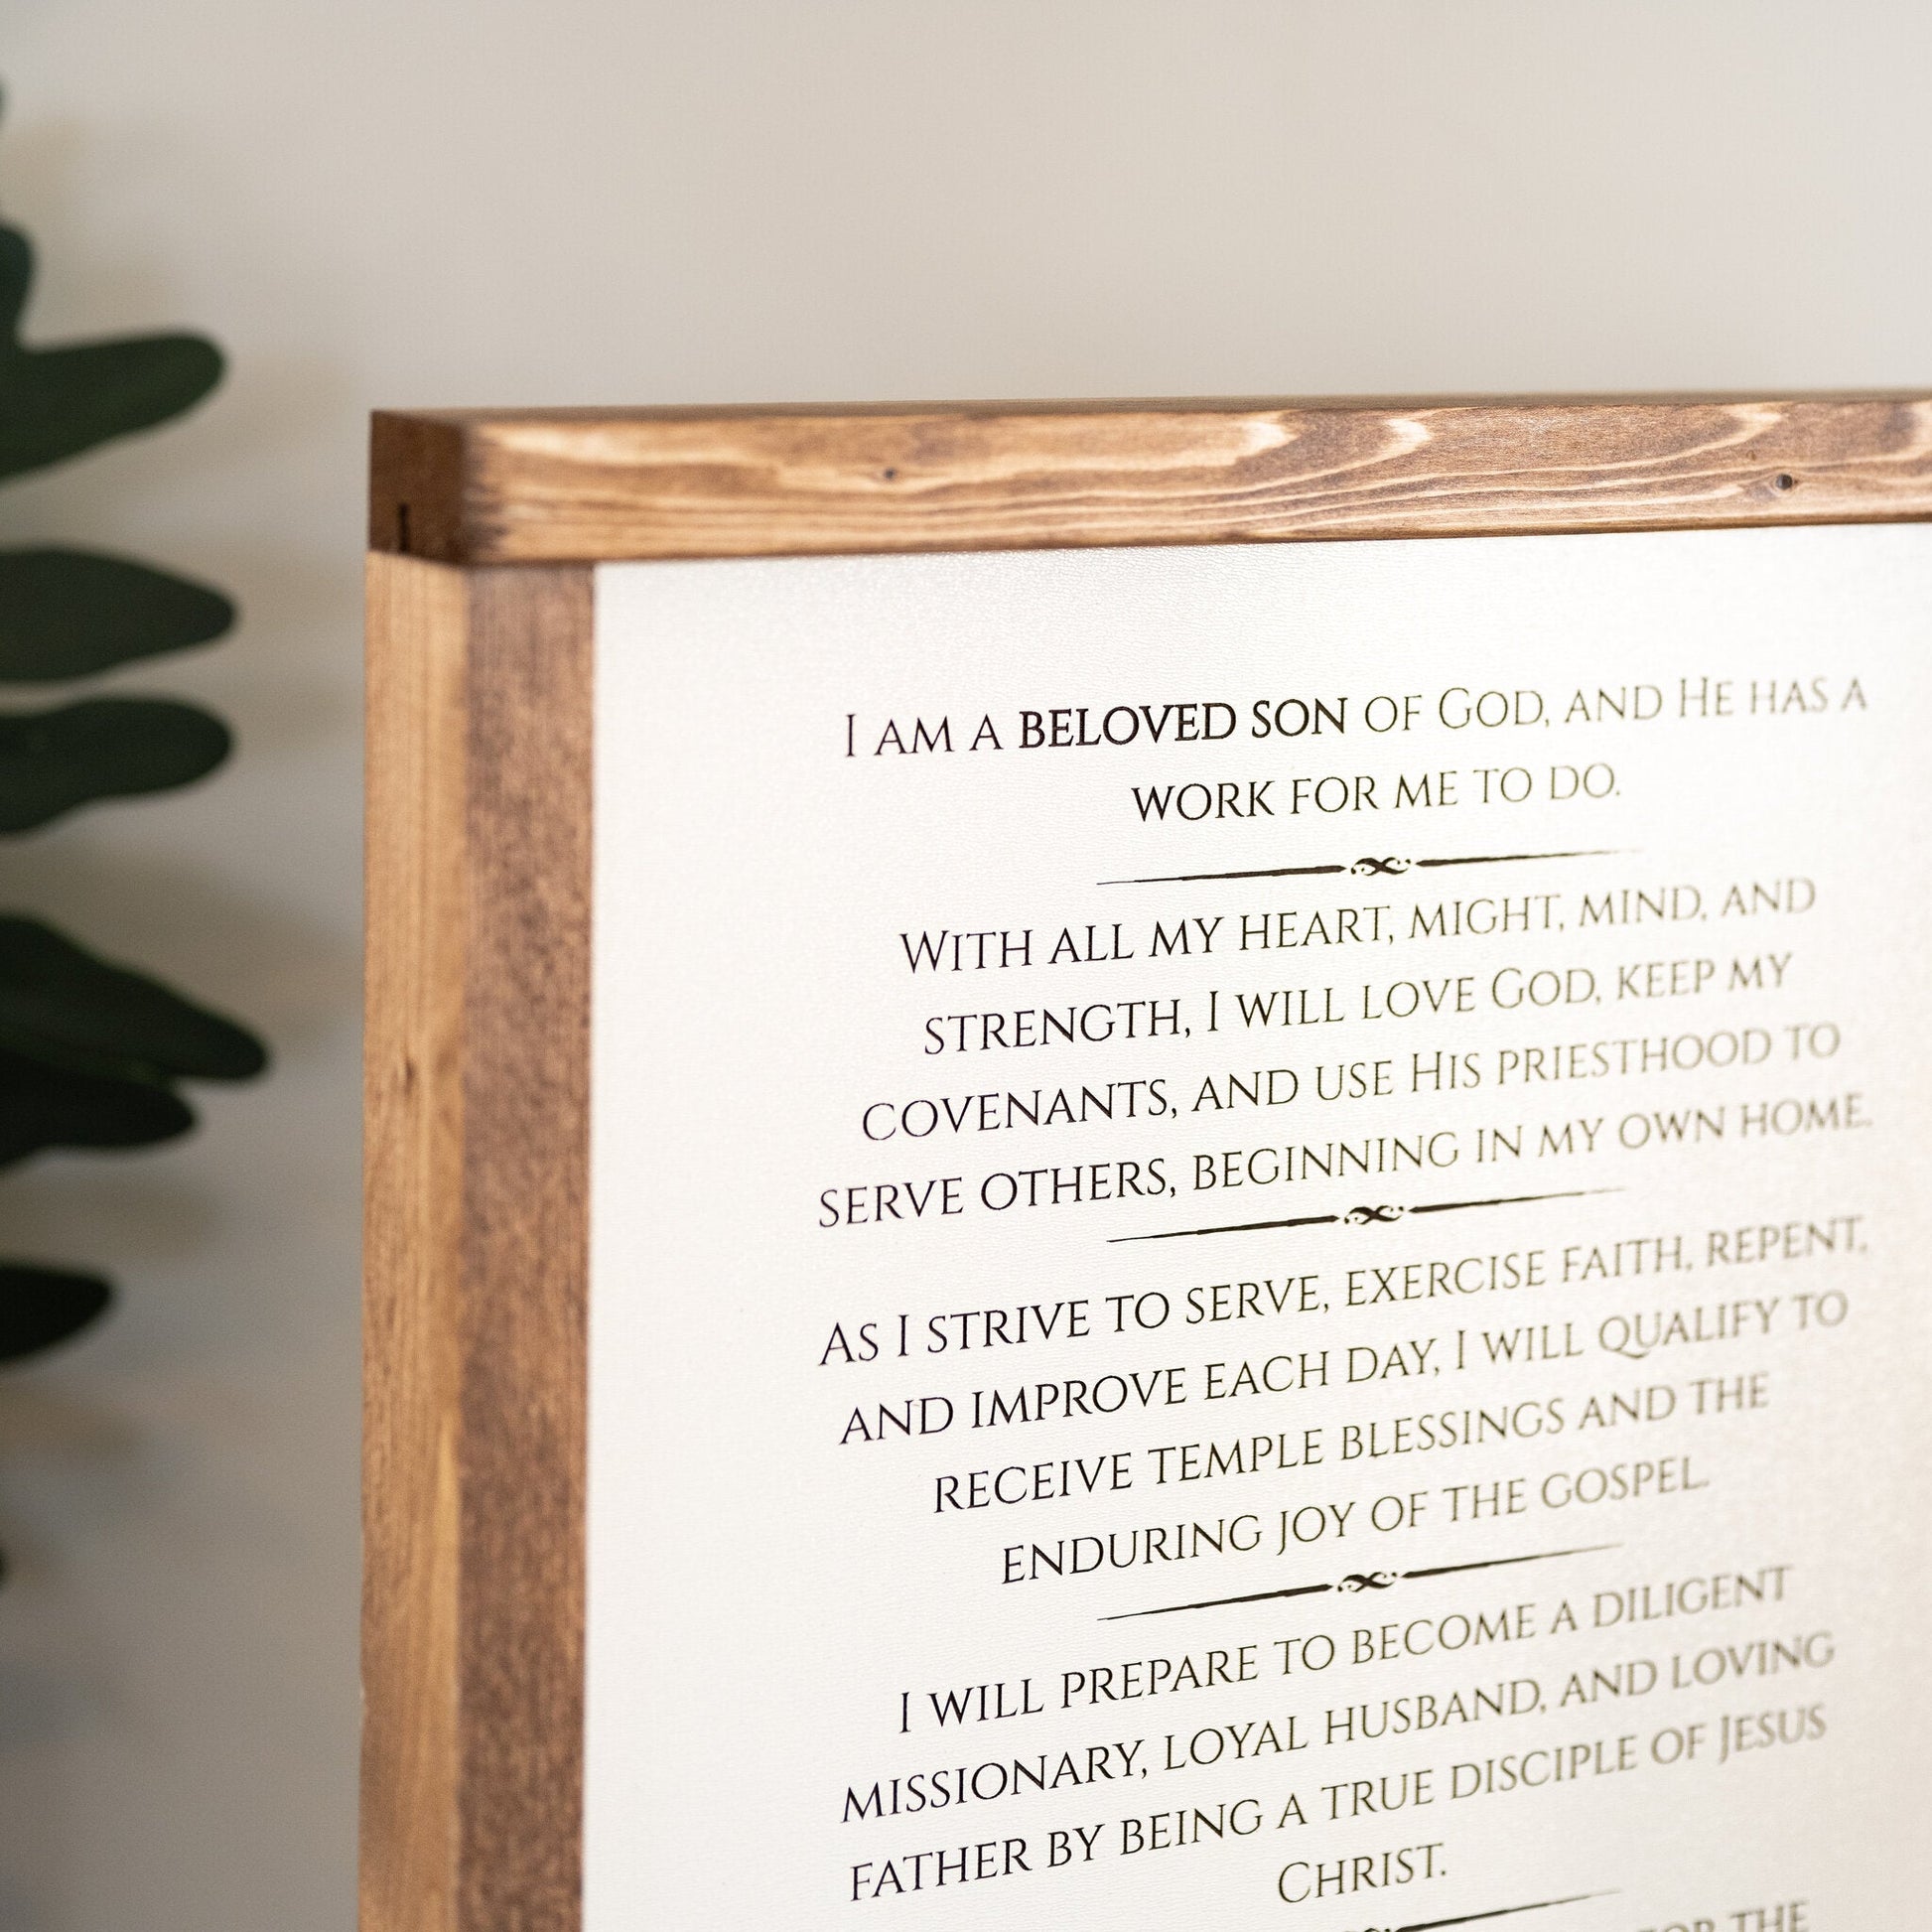 I AM A BELOVED SON OF GOD, AND HE HAS A
WORK FOR ME TO DO.
WITH ALL MY HEART, MIGHT, MIND, AND
STRENGTH, I WILL LOVE GOD, KEEP MY
COVENANTS, AND USE HIS PRIESTHOOD TO
SERVE OTHERS, BEGINNING IN MY OWN HOME.
AS I STRIVE TO SERVE, EXERCISE FAITH, REPENT,
AND IMPROVE EACH DAY, I WILL QUALIFY TO
RECEIVE TEMPLE BLESSINGS AND THE
ENDURING JOY OF THE GOSPEL.
I WILL PREPARE TO BECOME A DILIGENT
MISSIONARY, LOYAL HUSBAND, AND LOVING
FATHER BY BEING A TRUE DISCIPLE OF JESUS
CHRIST.
FOR THE